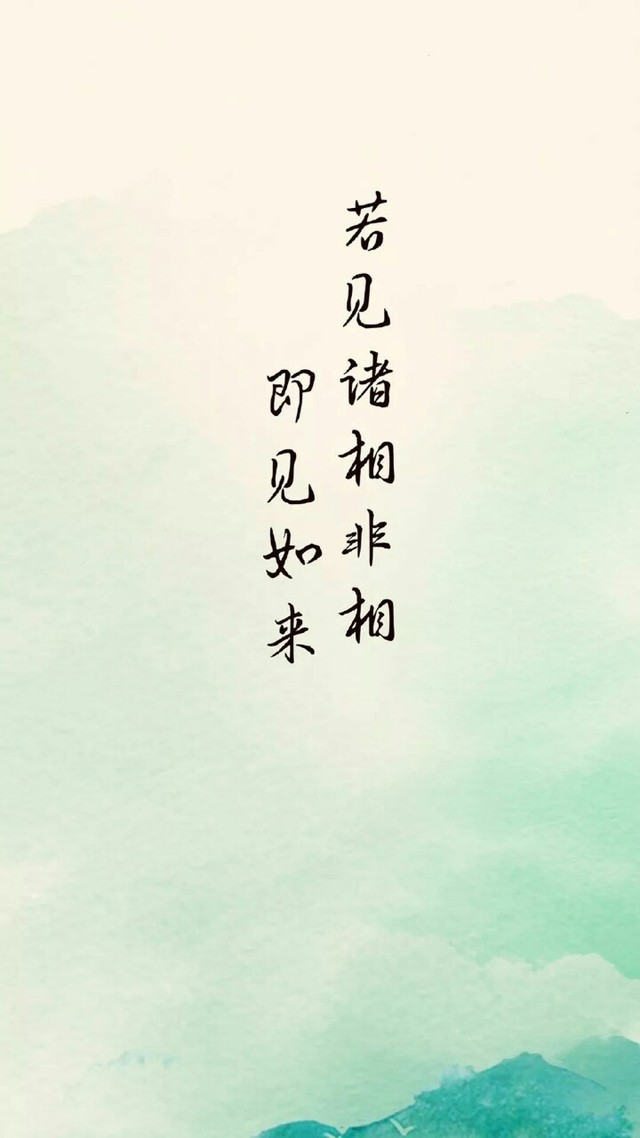 若见诸相非相
即见如来